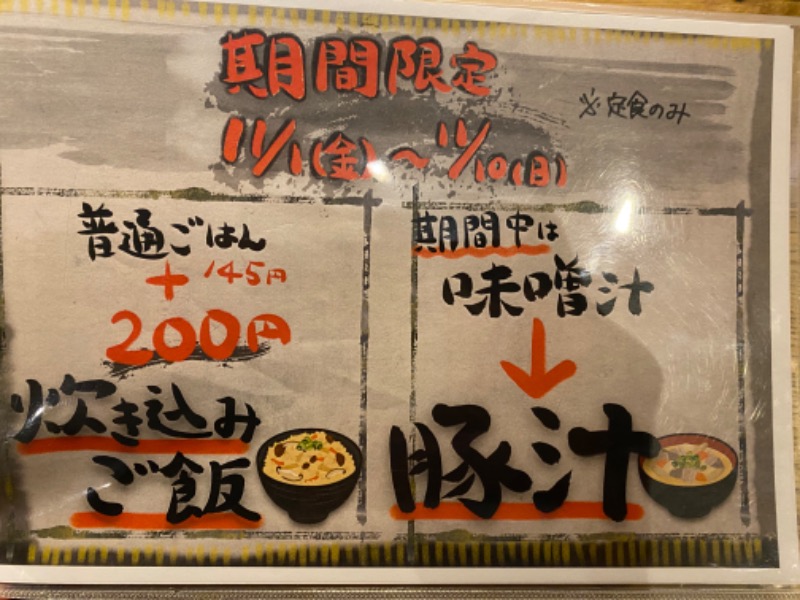 期間限定
※定食のみ
11/1(金)～11/10(日)
普通ごはん
+145円
200円
炊き込み
ご飯
期間中は
味噌汁
↓
豚汁